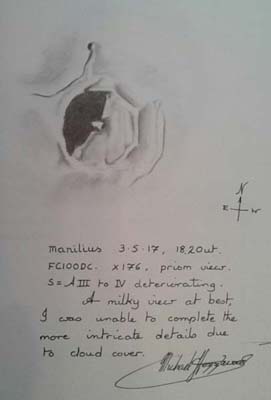 N
E W
Manilius 3.5.17, 18.20ut.
FC100DC. x176, prism view.
S = A III to IV deteriorating.
A milky view at best,
I was unable to complete the
more intricate details due
to cloud cover.
Michael